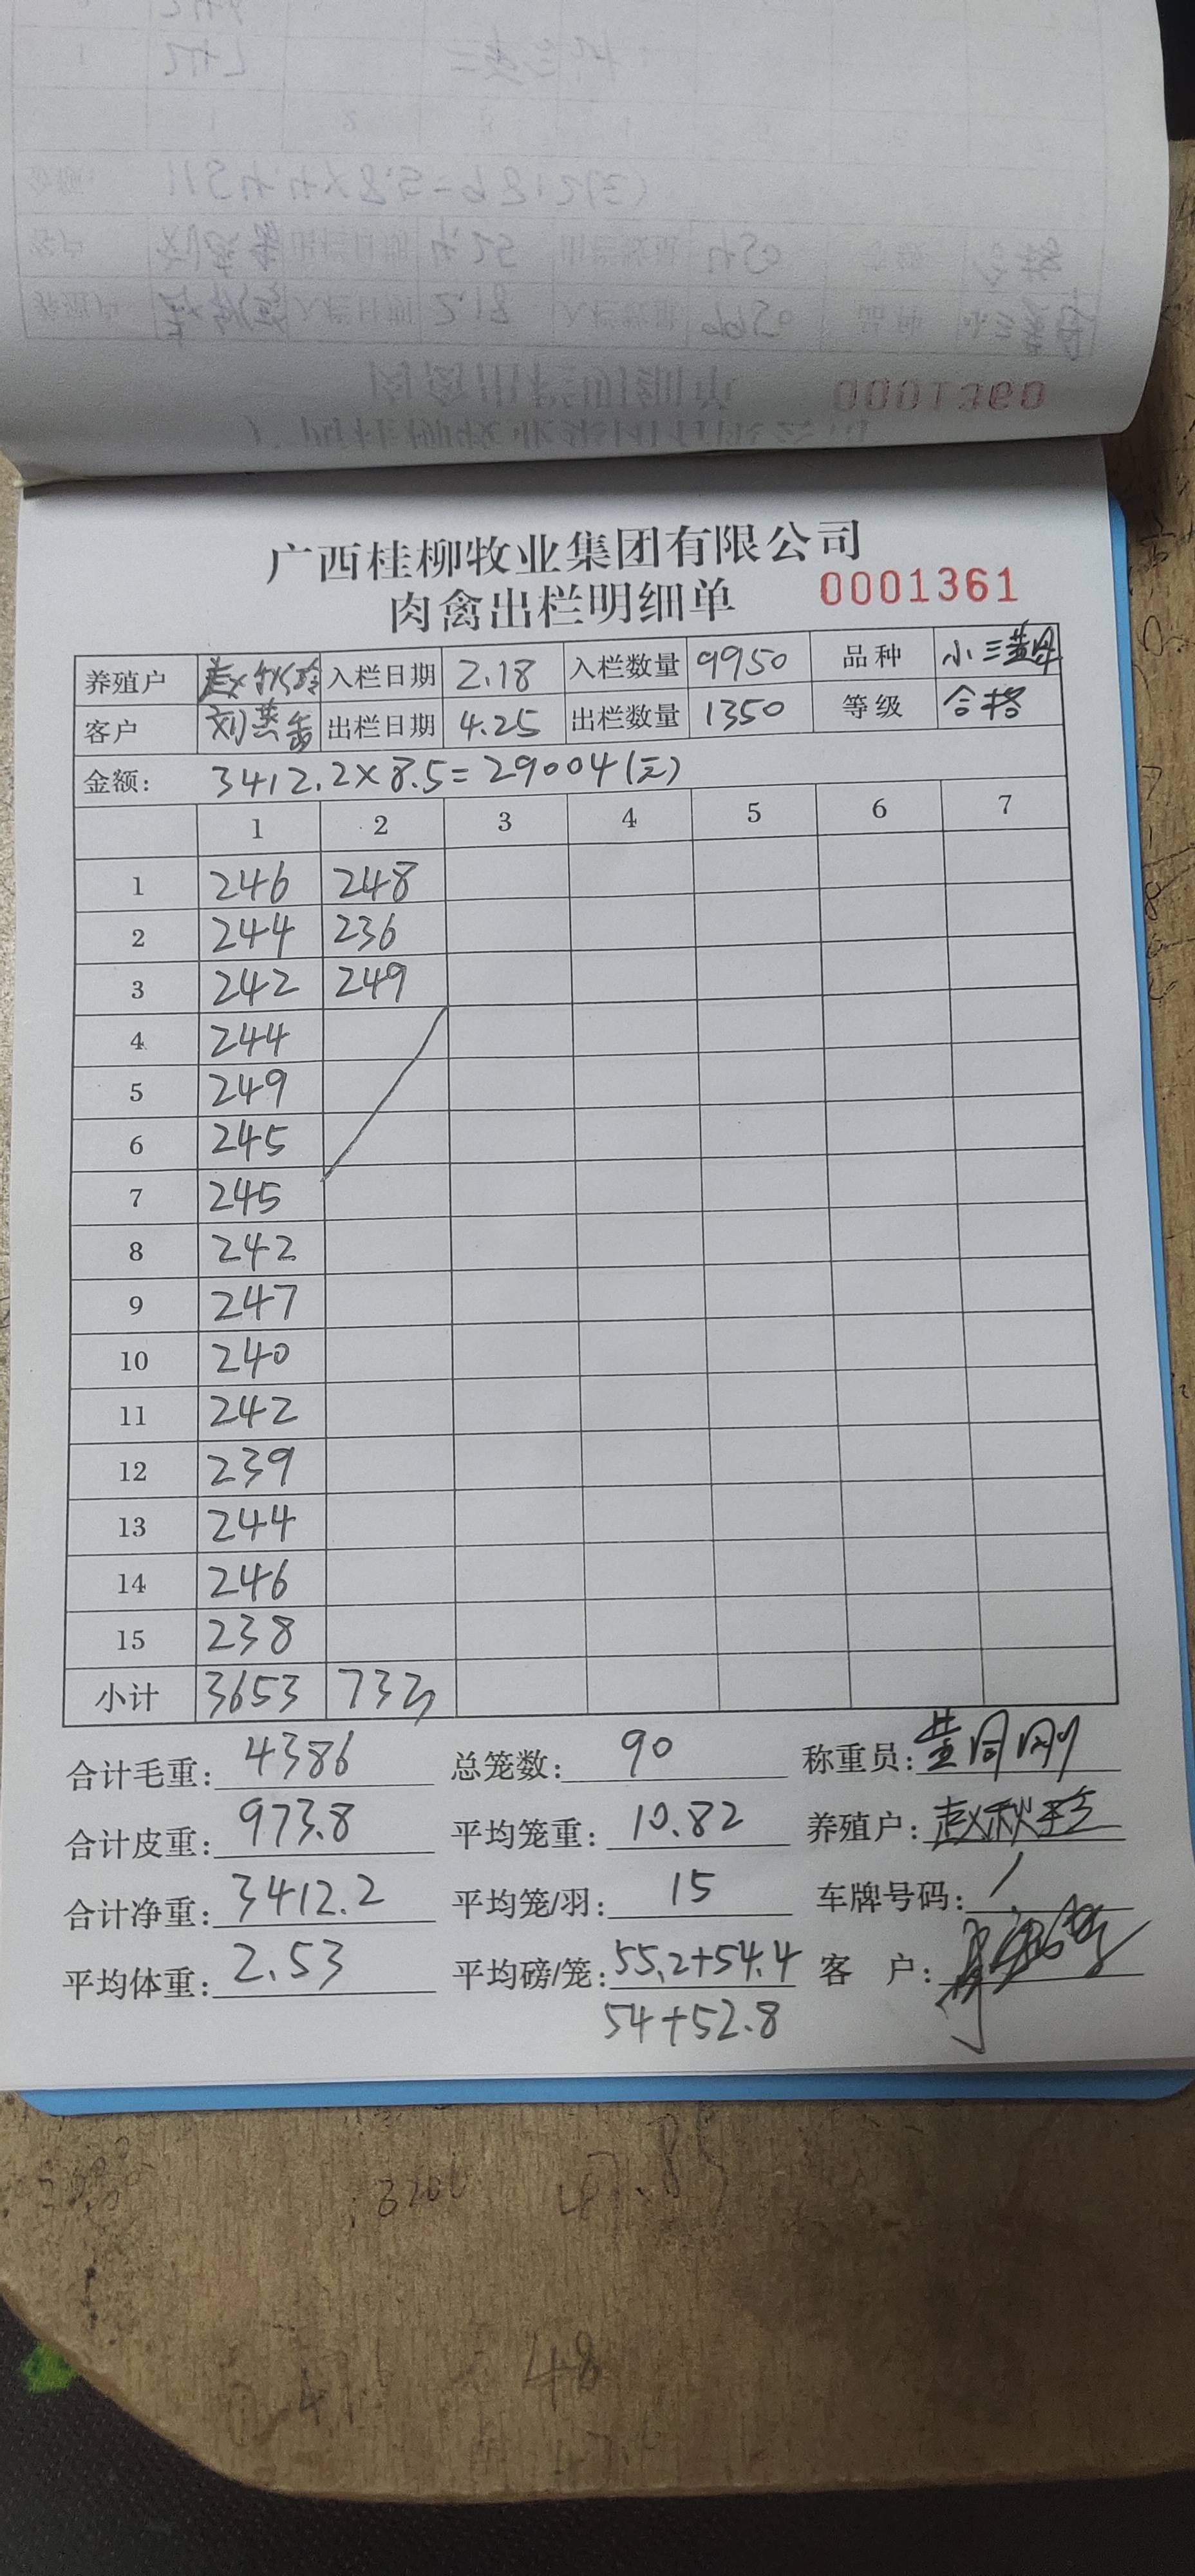 0001360
广西桂柳牧业集团有限公司
肉禽出栏明细单 0001361
养殖户 赵秋珍 入栏日期 2.18 入栏数量 9950 品种 小三黄母
客户 刘英雷 出栏日期 4.25 出栏数量 1350 等级 合格
金额: 3412.2×8.5=29004(元)
1 2 3 4 5 6 7
1 246 248
2 244 236
3 242 249
4 244
5 249
6 245
7 245
8 242
9 247
10 240
11 242
12 239
13 244
14 246
15 238
小计 3653 733
合计毛重: 4386 总笼数: 90 称重员: 黄同刚
合计皮重: 973.8 平均笼重: 10.82 养殖户: 赵秋珍
合计净重: 3412.2 平均笼/羽: 15 车牌号码: /
平均体重: 2.53 平均磅/笼: 55.2+54.4 客 户:
54+52.8